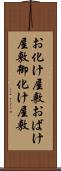 お化け屋敷おばけ
屋敷御化け屋敷